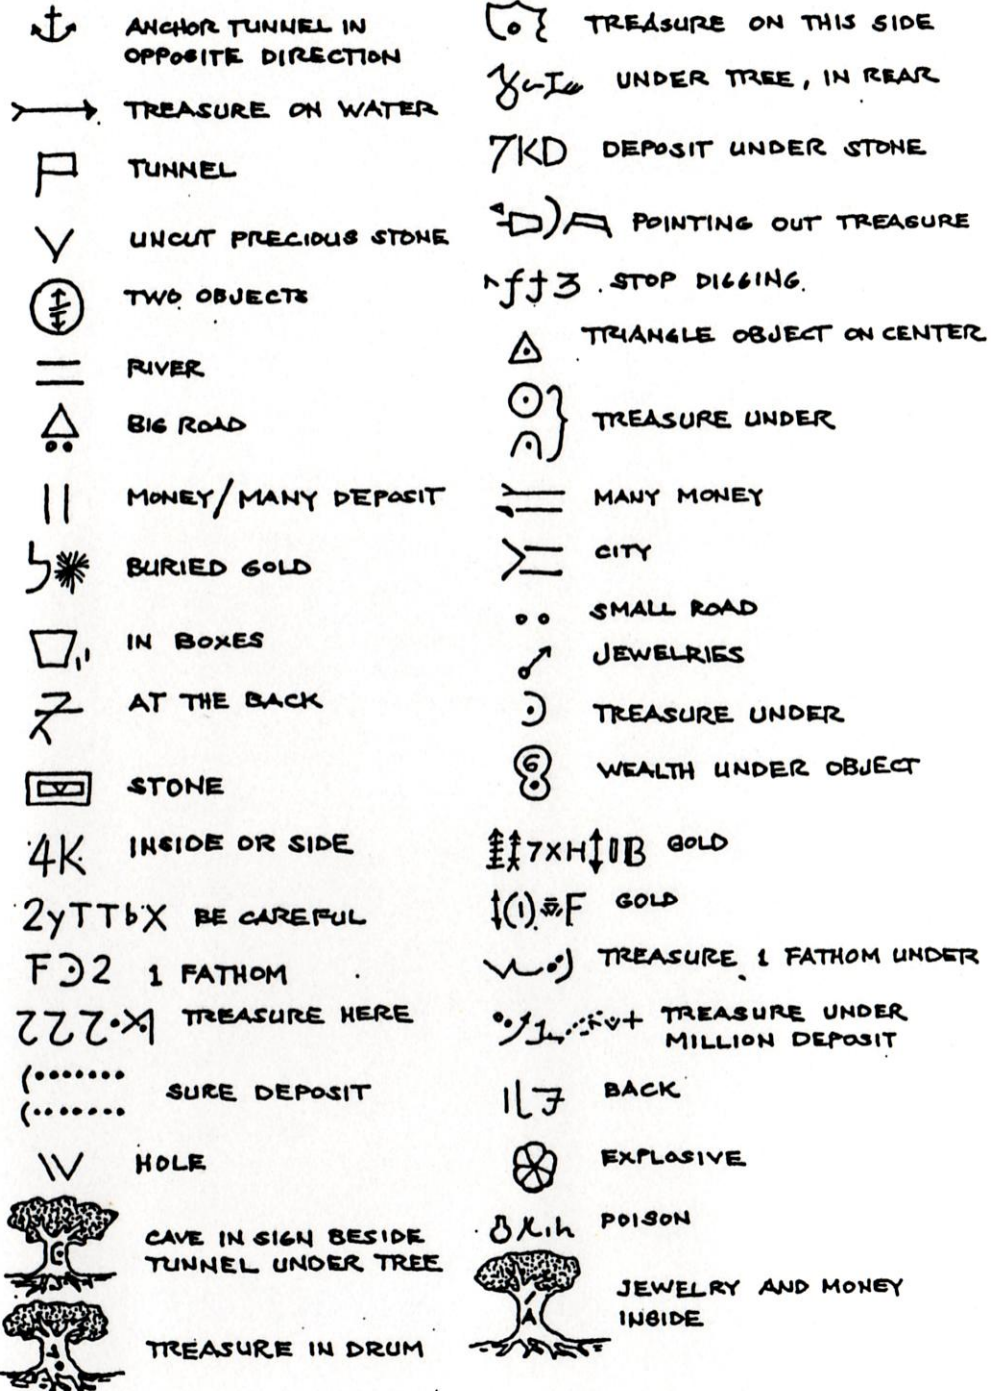 ANCHOR TUNNEL IN
OPPOSITE DIRECTION
TREASURE ON WATER
TUNNEL
UNCUT PRECIOUS STONE
TWO OBJECTS
RIVER
BIG ROAD
MONEY/MANY DEPOSIT
BURIED GOLD
IN BOXES
AT THE BACK
STONE
4K INSIDE OR SIDE
2yTTbX BE CAREFUL
1 FATHOM
TREASURE HERE
SURE DEPOSIT
HOLE
CAVE IN SIGN BESIDE
TUNNEL UNDER TREE
TREASURE IN DRUM
TREASURE ON THIS SIDE
UNDER TREE, IN REAR
7KD DEPOSIT UNDER STONE
POINTING OUT TREASURE
STOP DIGGING.
TRIANGLE OBJECT ON CENTER
TREASURE UNDER
MANY MONEY
CITY
SMALL ROAD
JEWELRIES
TREASURE UNDER
WEALTH UNDER OBJECT
GOLD
GOLD
TREASURE 1 FATHOM UNDER
TREASURE UNDER
MILLION DEPOSIT
BACK
EXPLOSIVE
POISON
JEWELRY AND MONEY
INSIDE